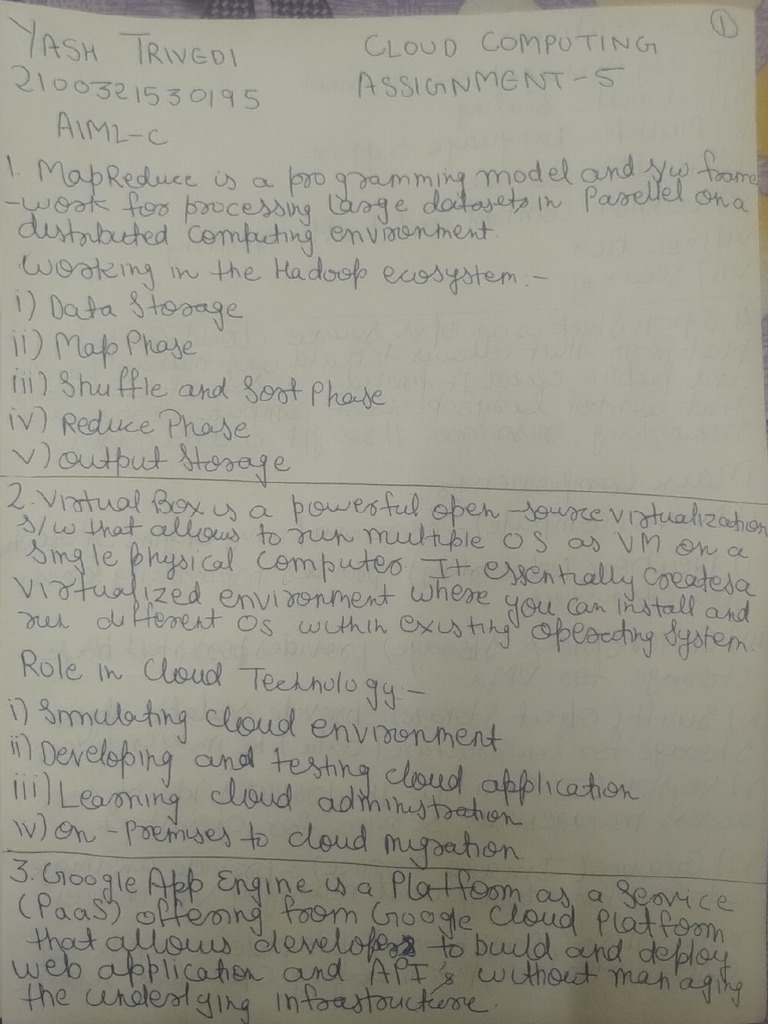 ①
YASH TRIVEDI
CLOUD COMPUTING
2100321530195
ASSIGNMENT-5
AIML-C
1. MapReduce is a programming model and s/w frame
-work for processing large datasets in Parellel on a
distributed computing environment.
Working in the Hadoop ecosystem:-
i) Data Storage
ii) Map Phase
iii) Shuffle and Sort Phase
iv) Reduce Phase
v) Output Storage
2. Virtual Box is a powerful open-source virtualization
s/w that allows to run multiple OS as VM on a
single physical computer It essentially creates a
virtualized environment where you can install and
run different OS within existing operating system.
Role in Cloud Technology:-
i) Simulating cloud environment
ii) Developing and testing cloud application
iii) Learning cloud administration
iv) On-premises to cloud migration.
3. Google App Engine is a Platform as a Service
(PaaS) offering from Google Cloud Platform
that allows developers to build and deploy
web application and API's without managing
the underlying infrastructure.